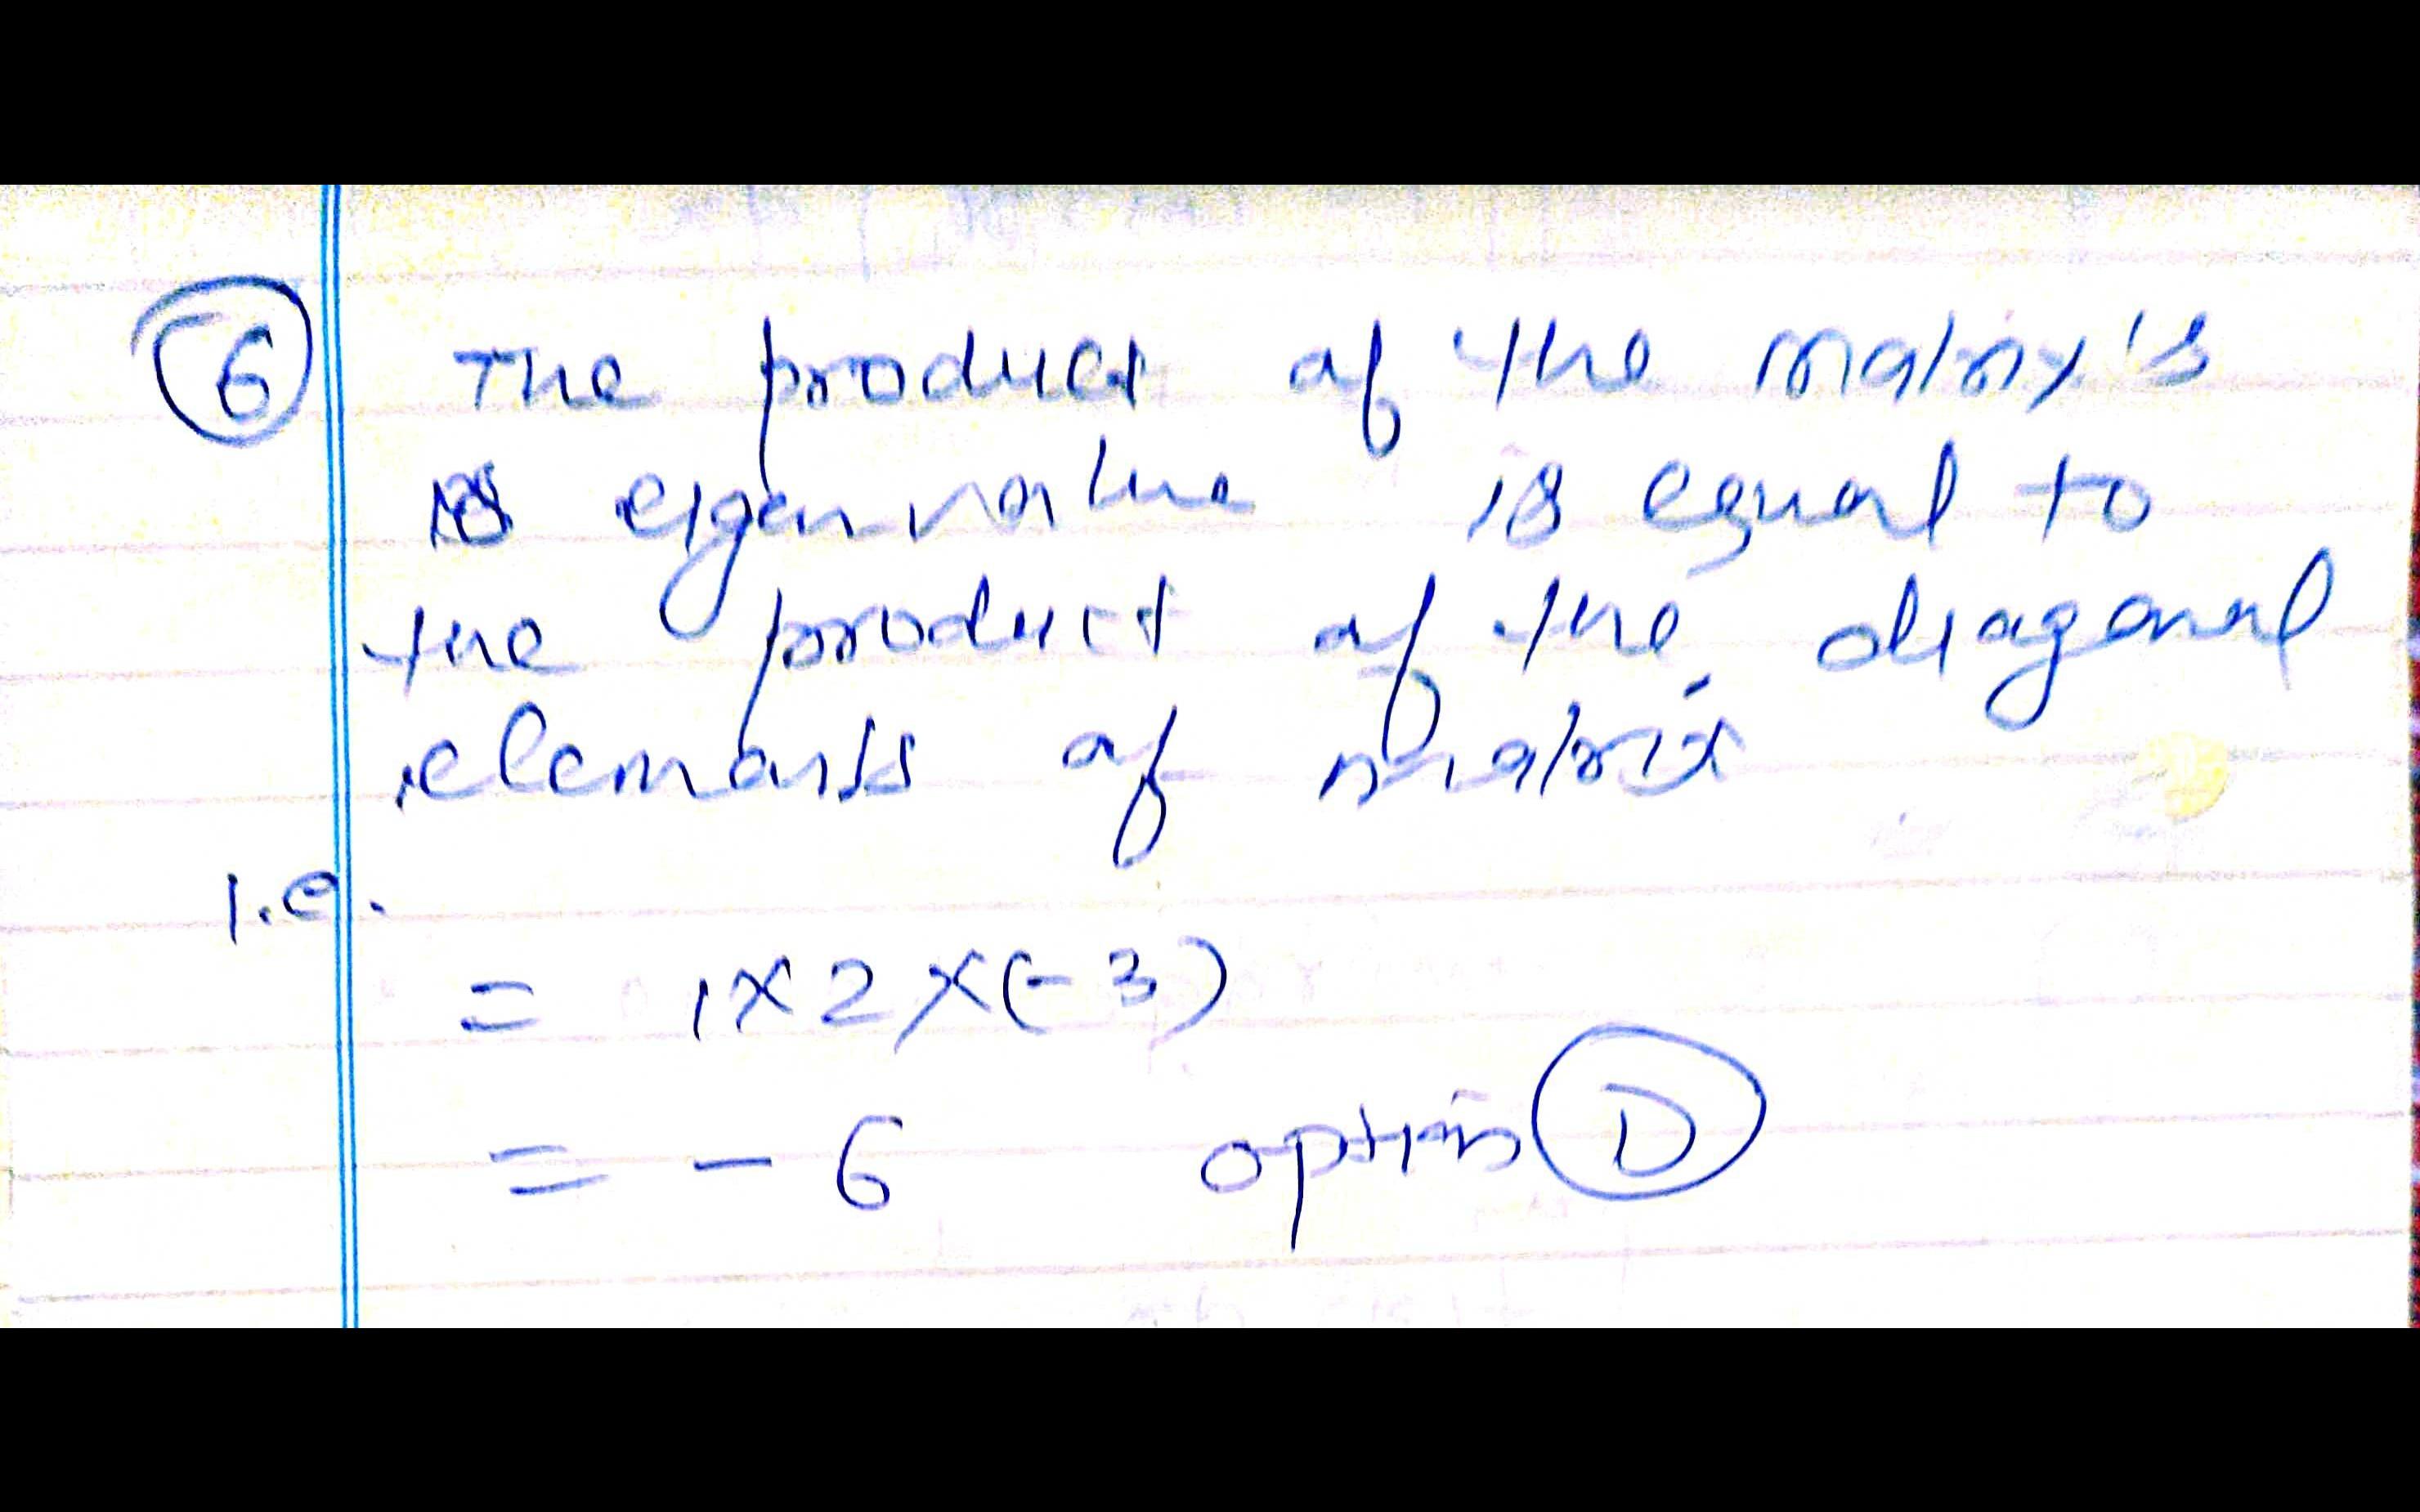 6 The product of the matrix's
eigenvalue is equal to
the product of the diagonal
elements of matrix
i.e.
= 1×2×(-3)
= -6 option D